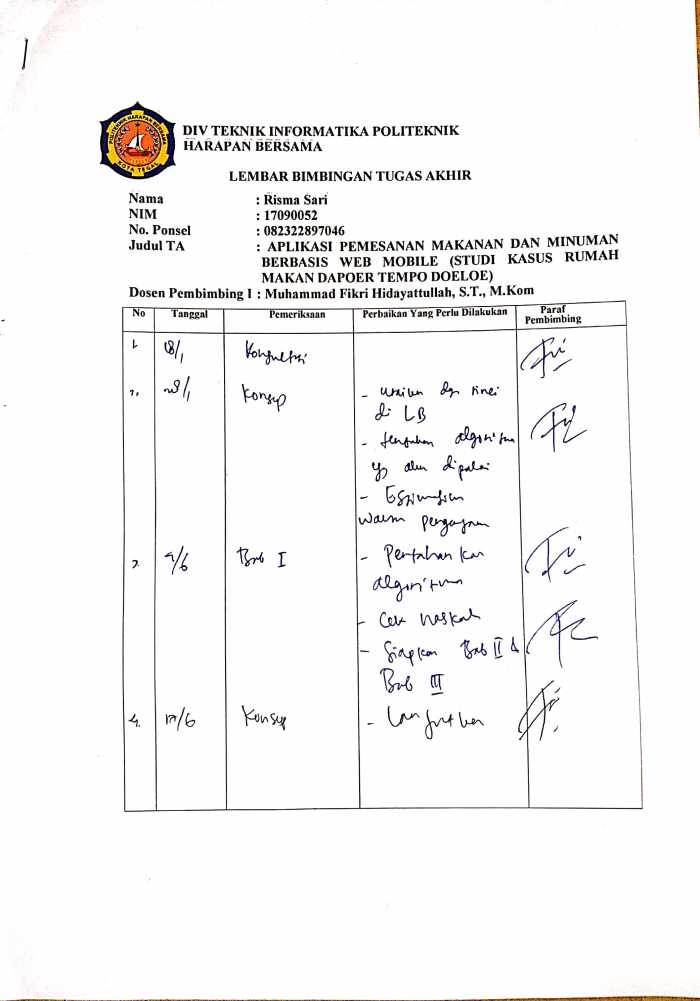 POLITEKNIK HARAPAN BERSAMA
KOTA TEGAL
DIV TEKNIK INFORMATIKA POLITEKNIK
HARAPAN BERSAMA
LEMBAR BIMBINGAN TUGAS AKHIR
Nama : Risma Sari
NIM : 17090052
No. Ponsel : 082322897046
Judul TA : APLIKASI PEMESANAN MAKANAN DAN MINUMAN
BERBASIS WEB MOBILE (STUDI KASUS RUMAH
MAKAN DAPOER TEMPO DOELOE)
Dosen Pembimbing I : Muhammad Fikri Hidayattullah, S.T., M.Kom
No Tanggal Pemeriksaan Perbaikan Yang Perlu Dilakukan Paraf
Pembimbing
1. 18/1 Konsultasi
2. 28/1 Konsep - uraikan dgn rinci
di LB
- tentukan algoritma
yg akan dipakai
-
3. 9/6 Bab I - Pertahankan
algoritma
- Cek naskah
- Siapkan Bab II &
Bab III
4. 17/6 Konsep - Lanjutkan